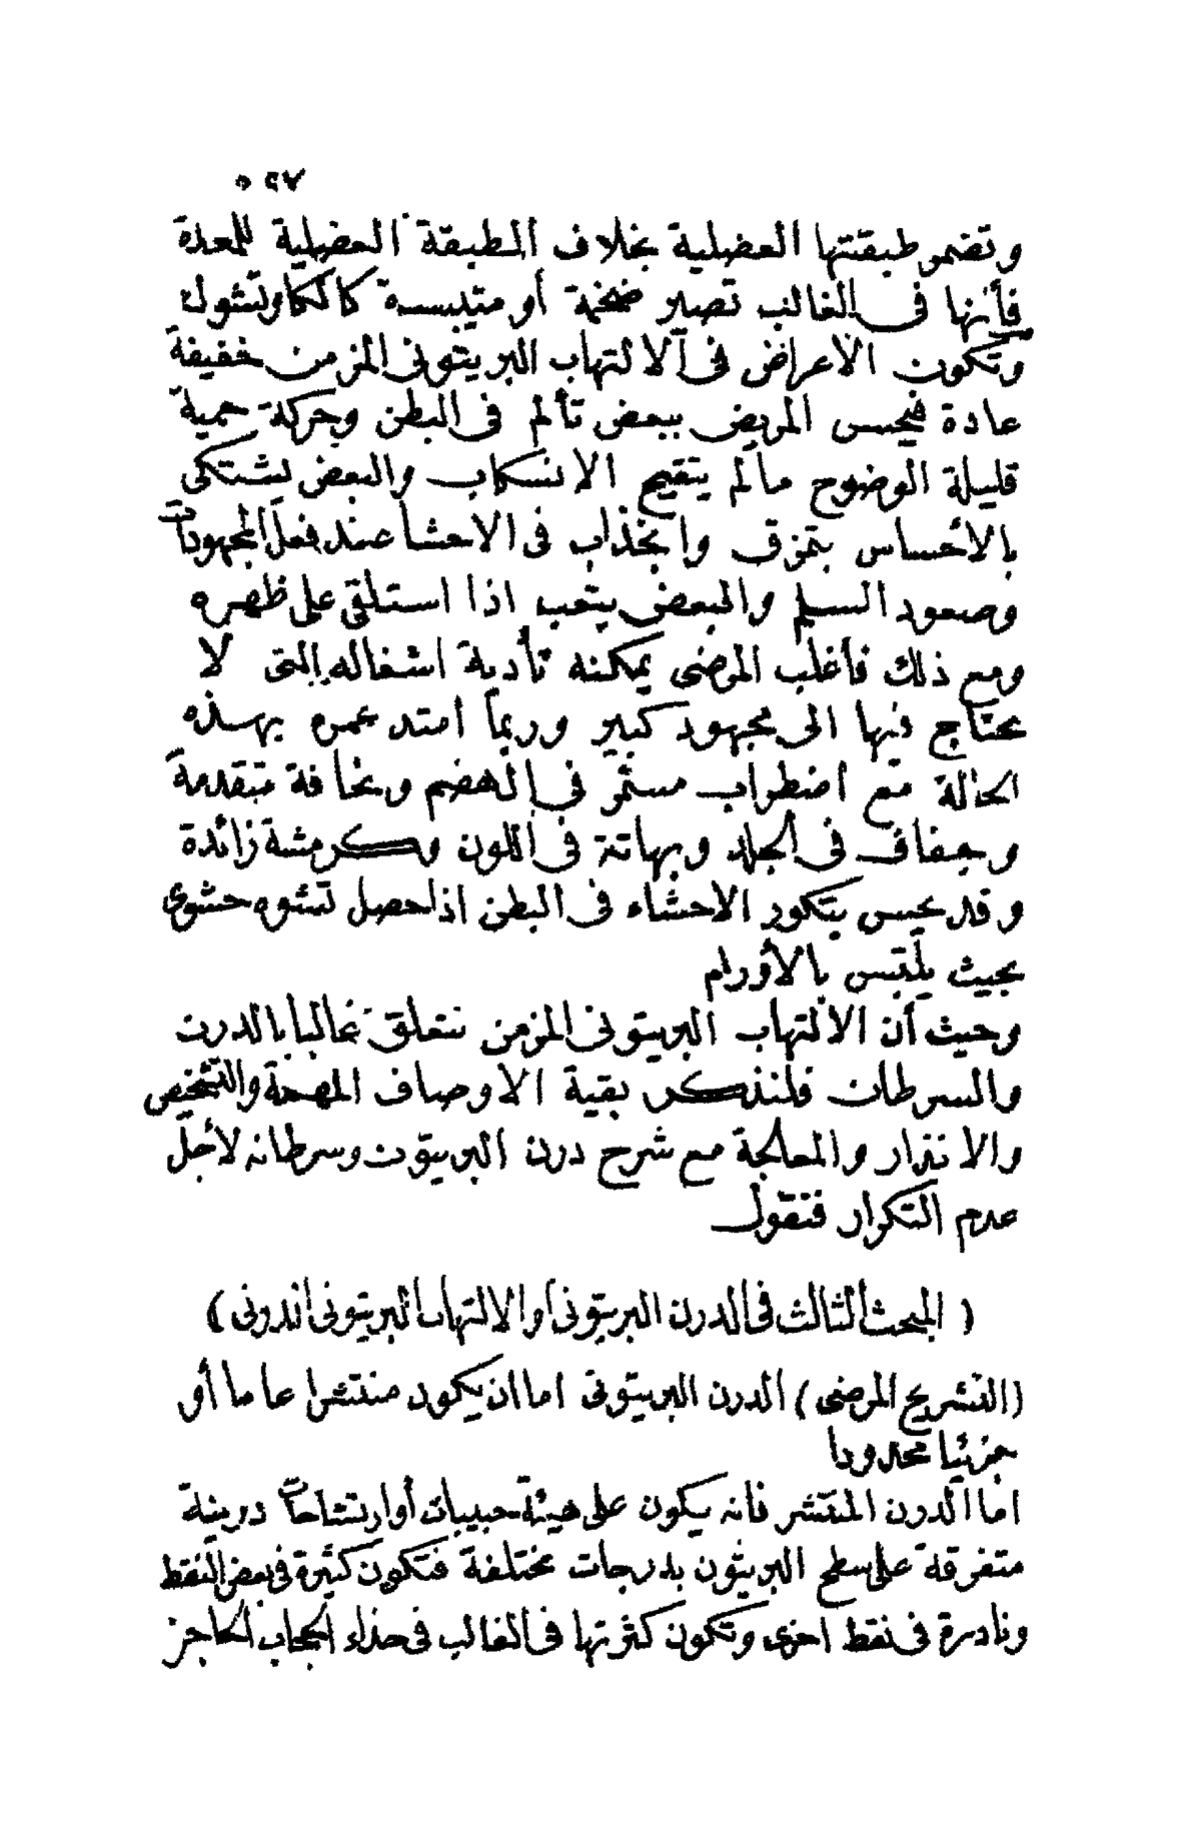 ٥٩٧
وتضمر طبقتها العضلية بخلاف الطبقة العضلية للمعدة
فأنها فى الغالب تصير ضخمة أو متيبسة كالكاوتشوك
وتكون الأعراض فى الالتهاب البريتونى المزمن خفيفة
عادة فيحس المريض ببعض تألم فى البطن وحركة حمية
قليلة الوضوح مالم يتقيح الانسكاب والبعض يشتكى
بالأحساس بتمزق وانجذاب فى الاحشا عند فعل المجهودات
وصعود السلم والبعض يتعب اذا استلقى على ظهره
ومع ذلك فأغلب المرضى يمكنه تأدية اشغاله التى لا
يحتاج فيها الى مجهود كبير وربما امتد عمره بهذه
الحالة مع اضطراب مستمر فى الهضم ونحافة متقدمة
وجفاف فى الجلد وبهاتة فى اللون وكرمشة زائدة
وقد يحس بتكور الاحشاء فى البطن اذا حصل تشوه حشوى
بحيث يلتبس بالأورام
وحيث أن الالتهاب البريتونى المزمن يتعلق غالبا بالدرن
والسرطان فلنذكر بقية الاوصاف المهمة والتشخيص
والانذار والمعالجة مع شرح درن البريتون وسرطانه لأجل
عدم التكرار فنقول
( المبحث الثالث فى الدرن البريتونى أو الالتهاب البريتونى الدرنى )
(التشريح المرضى) الدرن البريتونى اما ان يكون منتشرا عاما أو
جزئيا محدودا
اما الدرن المنتشر فانه يكون على هيئة حبيبات أو ارتشاحات درنية
متفرقة على سطح البريتون بدرجات مختلفة فتكون كثيرة فى بعض النقط
ونادرة فى نقط اخرى وتكون كثرتها فى الغالب فى حذاء الحجاب الحاجز